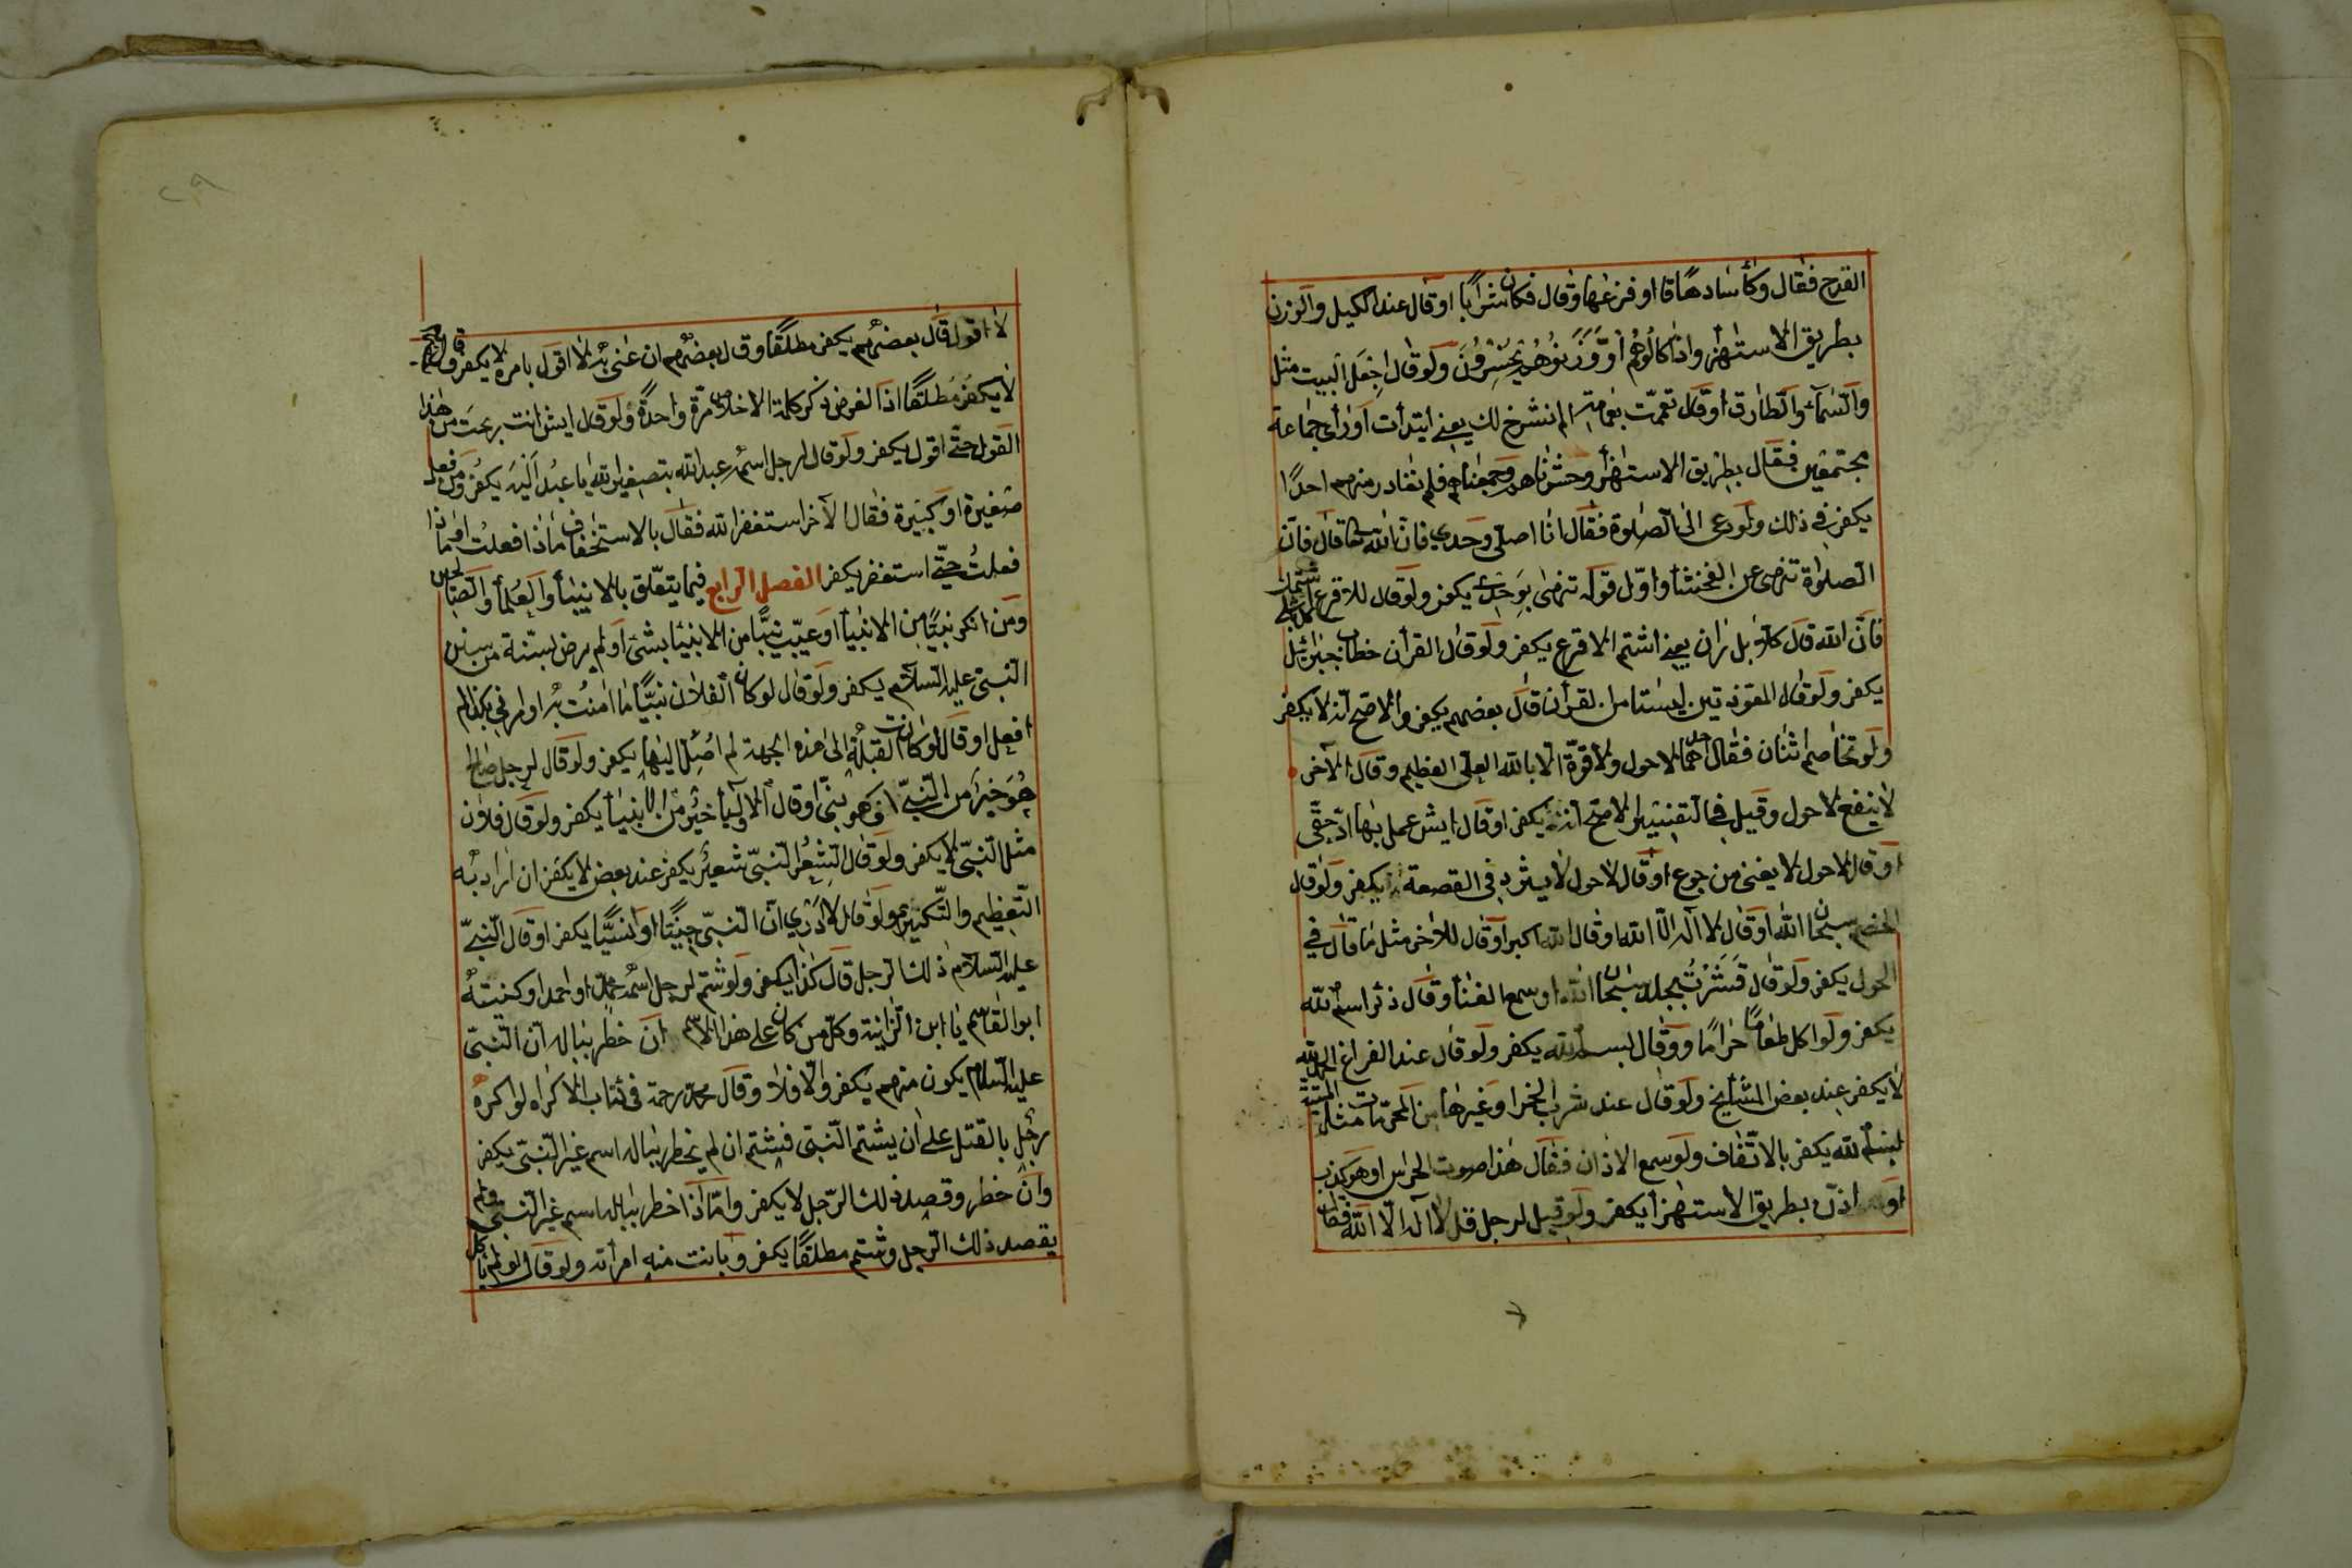 القدح فقال وكأسا دهاقا او فرغها وقال فكانت شرابا او قال عند الكيل والوزن
بطريق الاستهزاء واذا كالوهم او وزنوهم يخسرون ولو قال اجعل البيت مثل
والسماء والطارق او قال تعممت بعمامة الم نشرح لك يعني ابتدأت او رأى جماعة
مجتمعين فقال بطريق الاستهزأ وحشرناهم وجمعناهم فلم نغادر منهم احدا
يكفر في ذلك ولو دعى الى الصلوة فقال انا اصلى وحدي فان الله تعا قال فان
الصلوة تنهى عن الفحشا واول قوله تنهى بوحدي يكفر ولو قال للاقرع
فان الله قال كلا بل ران يعني اشتم الاقرع يكفر ولو قال القرأن خطاب جبرائيل
يكفر ولو قال المعوذتين ليستا من القرأن قال بعضهم يكفر والاصح انه لا يكفر
ولو تخاصم اثنان فقال احدهما لا حول ولا قوة الا بالله العلى العظيم وقال الآخر
لا ينفع لا حول وقيل في التفسير الاصح انه يكفر او قال ايش عمل بها ادى حقى
او قال لا حول لا يغنى من جوع او قال لا حول لا يثرد في القصعة يكفر ولو قال
الخصم سبحان الله او قال لا اله الا الله او قال الله اكبر او قال للآخر مثل ما قال في
الحول يكفر ولو قال سبحان الله او سمع الغنأ وقال ذكر اسم الله
يكفر ولو اكل طعاما حراما وقال بسم الله يكفر ولو قال عند الفراغ الحمد لله
لا يكفر عند بعض المشايخ ولو قال عند شرب الخمر او غيرها من المحرمات مثل الميتة
بسم الله يكفر بالاتفاق ولو سمع الاذان فقال هذا صوت الجرس او هو كذب
او اذن بطريق الاستهزأ يكفر ولو قيل لرجل قل لا اله الا الله فقال
٢٩
لا اقول قال بعضهم يكفر مطلقا وقال بعضهم ان عنى به لا اقول بامره لا يكفر وقال بعضهم
لا يكفر مطلقا اذ الفرض ذكر كلمة الاخلاص مرة واحدة ولو قال ايش انت ربحت من هذا
القول حتى اقول يكفر ولو قال لرجل اسمه عبد الله بتصغير الله يا عبد اليه يكفر ومن فعل
صغيرة او كبيرة فقال الآخر استغفر الله فقال بالاستخفاف ماذا فعلت او ماذا
فعلت حتى استغفر يكفر الفصل الرابع فيما يتعلق بالانبيأ والعلمأ والصالحين
ومن انكر نبيا من الانبيأ او عيب نبيا من الانبيا بشئ او لم يرض بسنة من سنن
النبى عليه السلام يكفر ولو قال لو كان الفلان نبيا ما امنت به او امرنى بكذا لم
افعل او قال لو كانت القبلة الى هذه الجهة لم اصل اليها يكفر ولو قال لرجل صالح
هو خير من النبى او كهو نبى او قال الاوليأ خير من الانبيأ يكفر ولو قال فلان
مثل النبى لا يكفر ولو قال لشعر النبى شعير يكفر عند بعض لا يكفر ان اراد به
التعظيم والتكثير ولو قال لا ادري ان النبى جنيا او انسيا يكفر او قال النبى
عليه السلام ذلك الرجل قال كذا يكفر ولو شتم لرجل اسمه محمد او احمد او كنيته
ابو القاسم يا ابن الزانية وكل من كان على هذا الاسم ان خطر بباله ان النبى
عليه السلام يكون منهم يكفر والا فلا وقال محمد رحمة فى كتاب الاكراه لو اكره
رجل بالقتل على ان يشتم النبى فشتم ان لم يخطر بباله اسم غير النبى يكفر
وان خطر وقصد ذلك الرجل لا يكفر واما اذا خطر بباله اسم غير النبى ولم
يقصد ذلك الرجل وشتم مطلقا يكفر وبانت منه امرأته ولو قال لو لم يأكل